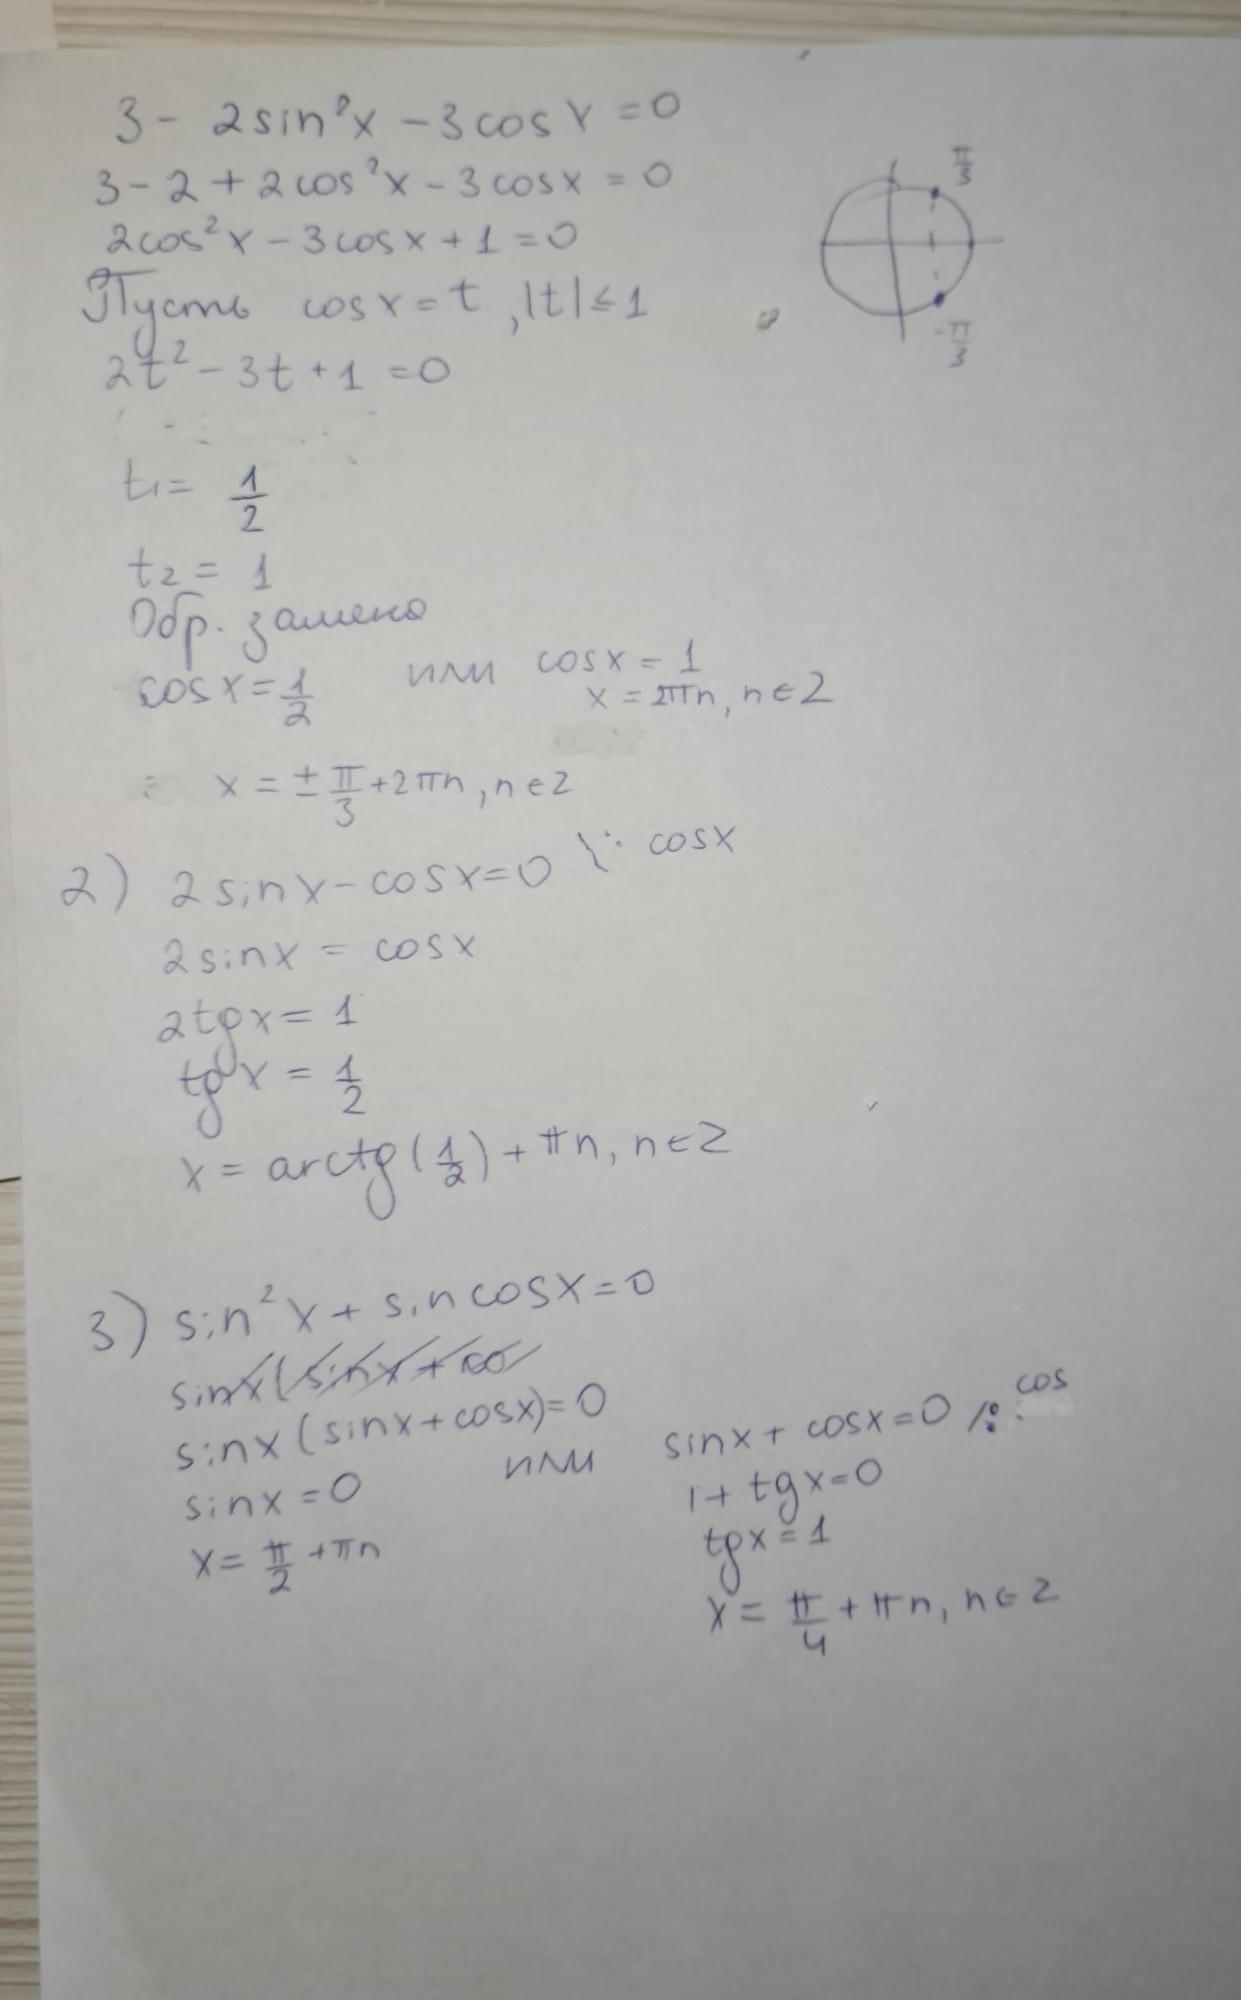 3 - 2sin²x - 3cosx = 0
3 - 2 + 2cos²x - 3cosx = 0
2cos²x - 3cosx + 1 = 0
Пусть cosx = t , |t| ≤ 1
2t² - 3t + 1 = 0
π/3
-π/3
t₁ = 1/2
t₂ = 1
Обр. замена
cosx = 1/2 или cosx = 1
x = 2πn, n ∈ Z
x = ± π/3 + 2πn, n ∈ Z
2) 2sinx - cosx = 0 \: cosx
2sinx = cosx
2tgx = 1
tgx = 1/2
x = arctg(1/2) + πn, n ∈ Z
3) sin²x + sincosx = 0
sinx(sinx + co
sinx(sinx + cosx) = 0
sinx = 0 или sinx + cosx = 0 /: cos
x = π/2 + πn
1 + tgx = 0
tgx = 1
x = π/4 + πn, n ∈ Z